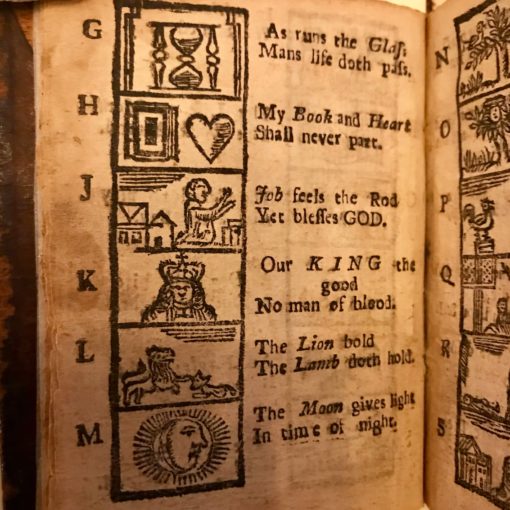 G
As runs the Glaſs
Mans life doth paſs.
H
My Book and Heart
Shall never part.
J
Job feels the Rod
Yet bleſſes GOD.
K
Our KING the
good
No man of blood.
L
The Lion bold
The Lamb doth hold.
M
The Moon gives light
In time of night.
N
O
P
Q
R
S